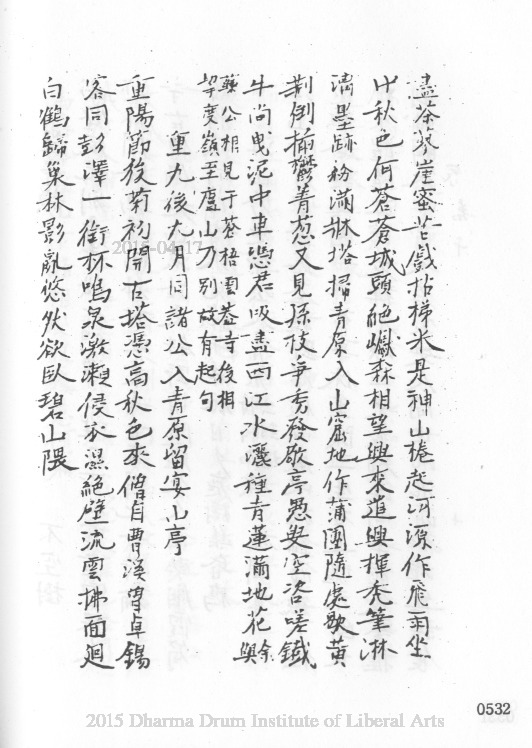 盡茶蓼崖蜜苦戲拈梯米是神山捲起河源作飛雨坐
中秋色何蒼蒼城頭絕巘森相望興來遣興揮禿筆淋
漓墨跡粉滿牀塔掃青原入山窟地作蒲團隨處歇黃
荊倒插鬱菁蔥又見孫枝爭秀發歇亭愚叟空咨嗟鐵
牛尚曳泥中車憑君吸盡西江水灑種青蓮滿地花余與
藥公相見于蒼梧雲蓋寺後相
挈度嶺至廬山乃別故有起句
重九後九月同諸公入青原留宴山亭
重陽節後菊初開古塔憑高秋色來僧自曹溪曾卓錫
客同彭澤一銜杯鳴泉激瀨侵衣濕絕壁流雲拂面廻
白鶴歸巢林影亂悠然欲臥碧山隈
2015-04-17
0532
2015 Dharma Drum Institute of Liberal Arts